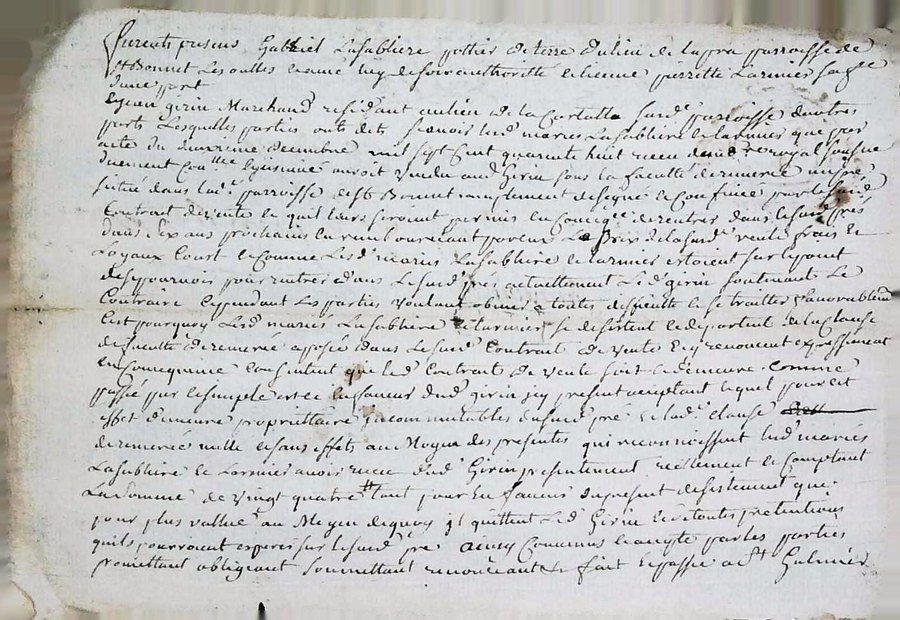 furents presens Gabriel Lasabliere pottier de terre du lieu de Lapra parroisse de
St Bonnet Les oulles et avec luy de son authorité et licence pierrette Larmier sa fe
d'une part
et jean girin Marchand residant au lieu de la Cortalla susd parroisse d'autre
part Lesquelles parties ont dit scavoir lesd maries Lasabliere et larmier que par
acte du dixieme decembre mil sept cent quarante huit receu royal soussigné
duement Con lle et jnsinué auroit vendu aud Girin sous la faculté de remeré un pré
situé dans lad parroisse de St Bonnet amplement designé et Confiné par le susd
Contract de vente et quil leurs seroit permis en Conseq de rentrer dans le susd pré
dans six ans prochains en remboursant Le prix de la susd vente frais et
Loyaux Coust et Comme Lesd maries Lasabliere et larmier estoient sur le point
de se pourvoir pour rentrer dans Le susd pré actuellement Led girin soutenant Le
Contraire Cependant Les parties voulant obvier a toutes difficulté et se traitter favorablem
C'est pourquoy Lesd maries Lasabliere et larmier se desistent et departent de la Clause
de faculté de remeré apposée dans Le susd Contract de vente et y renoncent expressement
en Consequence Consentent que led Contract de vente soit et demeure comme
passé pur et simple et en faveur dud girin jcy present acceptant lequel pour cet
effet demeure proprietaire jncommutable du susd pré et lad clause
de remeré nulle et sans effets au Moyen des presentes qui reconnoissent lesd mariés
Lasabliere et Larmier avoir receu dud Girin presentement reellement et Comptant
La somme de vingt quatre tt tant pour et en faveur du present desistement que
pour plus vallue au Moyen dequoy jl quittent Led Girin de toutes pretentions
quils pourroient esperer sur le susd pré Ainsy Convenus et accepté par les parties
promettant obligeant soumettant renonceant &c fait et passé a St Galmier